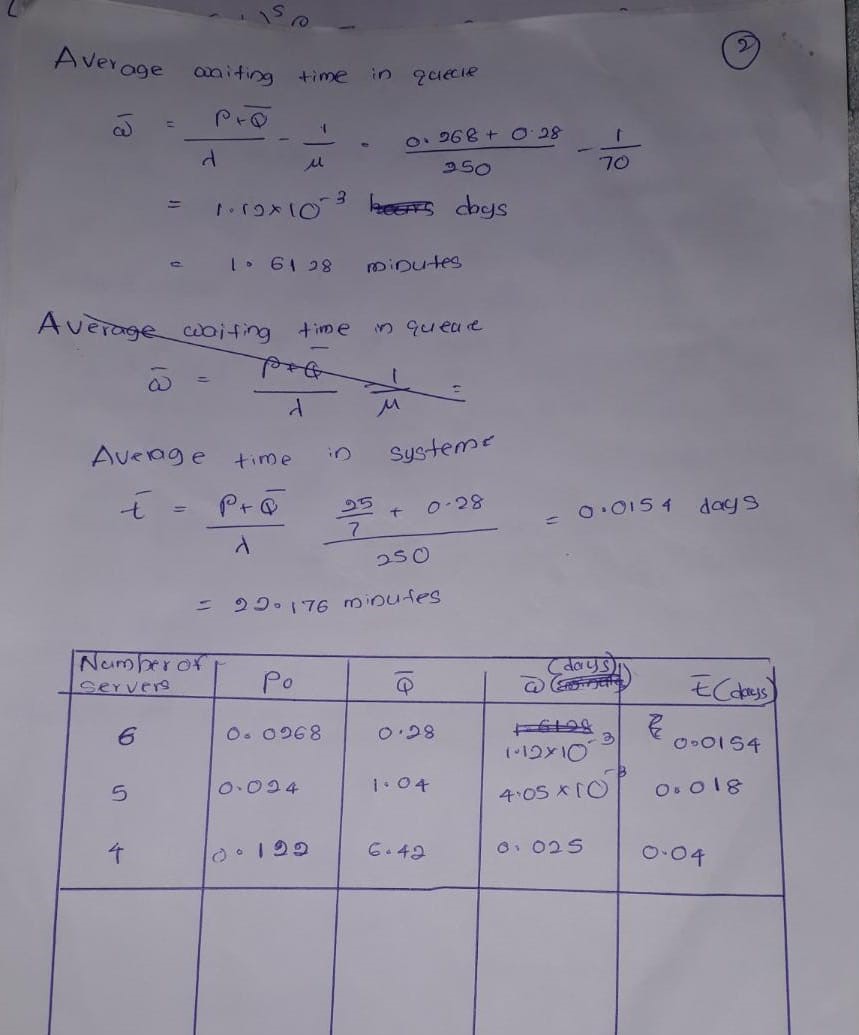 ②
Average waiting time in queue
ω̄ = (ρ+Q̄)/λ - 1/μ = (0.268 + 0.28)/250 - 1/70
= 1.12×10⁻³ days
= 1.6128 minutes
Average waiting time in queue
ω̄ = (ρ+Q̄)/λ 1/μ =
Average time in systems
t̄ = (ρ+Q̄)/λ (25/7 + 0.28)/250 = 0.0154 days
= 22.176 minutes
Number of servers P0 Q̄ ω̄ (days) t̄ (days)
6 0.0268 0.28 1.6128 1.12×10⁻³ 0.0154
5 0.024 1.04 4.05×10⁻³ 0.018
4 0.122 6.42 0.025 0.04